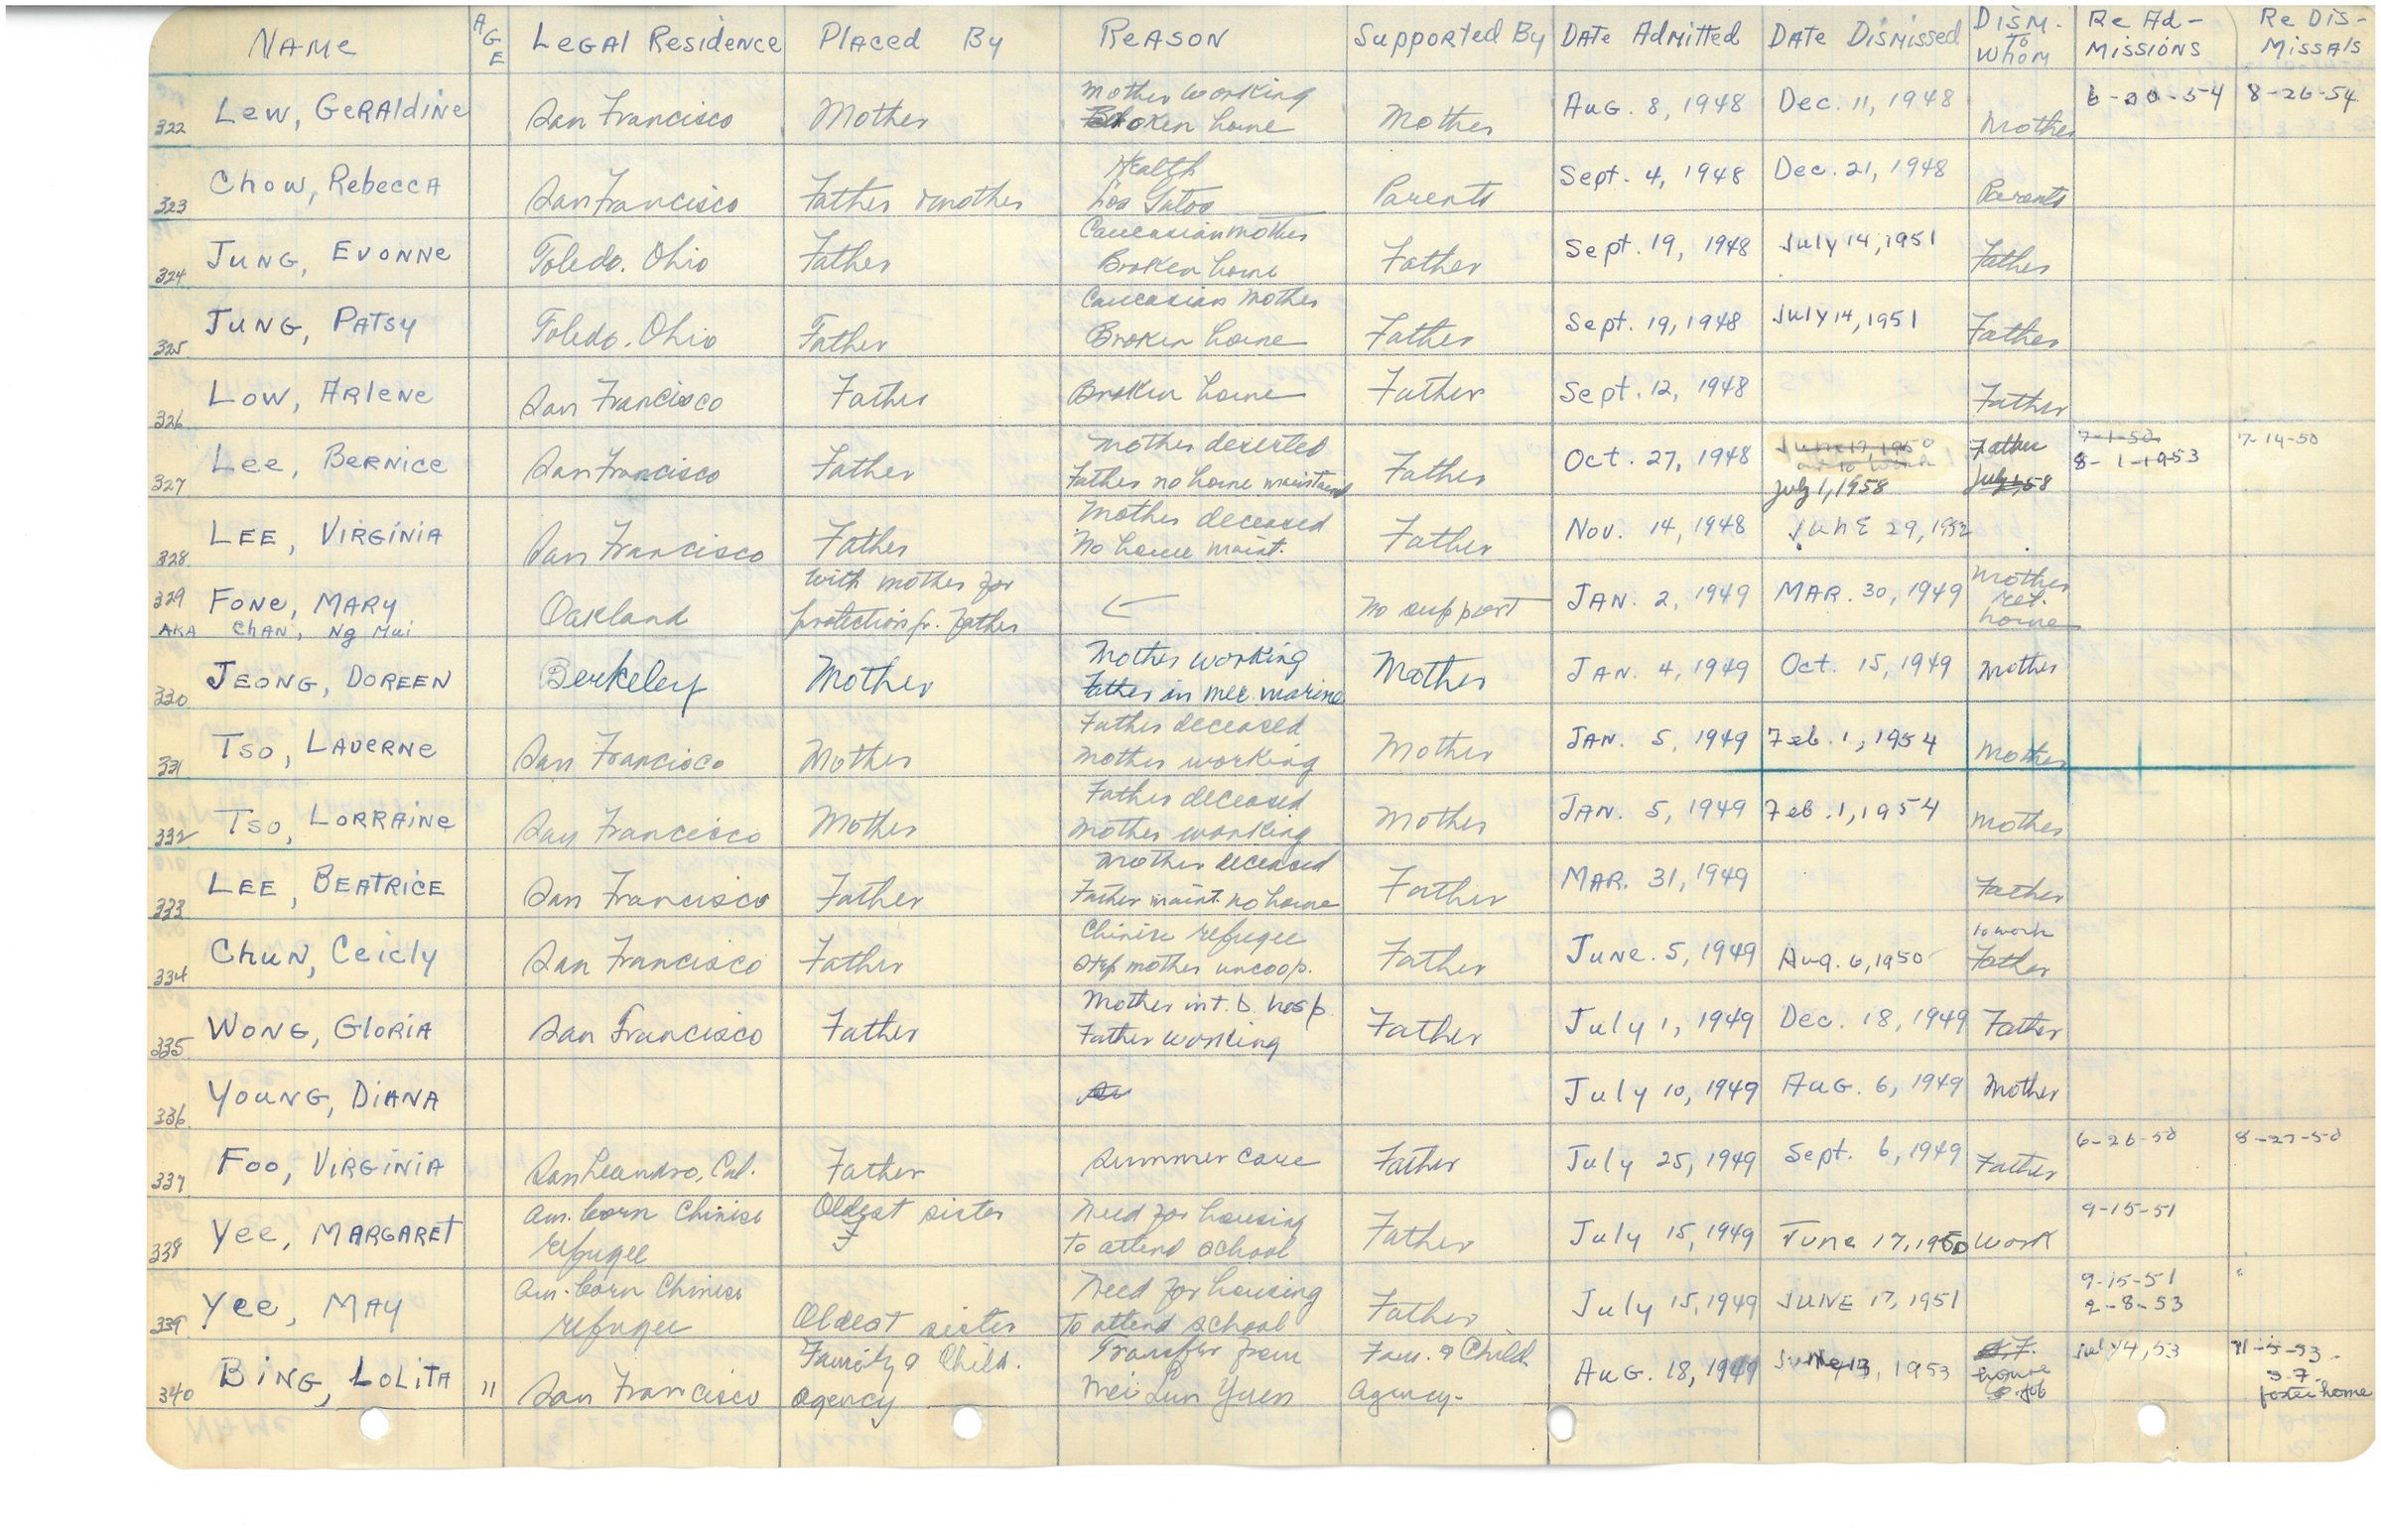 NAME AGE LEGAL RESIDENCE PLACED BY REASON SUPPORTED BY DATE ADMITTED DATE DISMISSED DISM. TO WHOM RE AD-MISSIONS RE DIS-MISSALS
322 LEW, GERALDINE San Francisco Mother Mother working Broken home Mother AUG. 8, 1948 DEC. 11, 1948 Mother 8-26-54
323 CHOW, REBECCA San Francisco Father & mother Health Los Gatos Parents SEPT. 4, 1948 DEC. 21, 1948 Parents
324 JUNG, EVONNE Toledo, Ohio Father Caucasian mother Broken home Father SEPT. 19, 1948 JULY 14, 1951 Father
325 JUNG, PATSY Toledo, Ohio Father Caucasian mother Broken home Father SEPT. 19, 1948 JULY 14, 1951 Father
326 LOW, ARLENE San Francisco Father Broken home Father SEPT. 12, 1948 Father
327 LEE, BERNICE San Francisco Father Mother deserted Father no home maintained Father OCT. 27, 1948 June 17, 1950 July 1, 1958 Father July 1, 58 7-1-50 8-1-1953 7-14-50
328 LEE, VIRGINIA San Francisco Father Mother deceased No home maint. Father NOV. 14, 1948 JUNE 29, 1952
329 FONE, MARY AKA CHAN, Ng Mui Oakland With mother for protection fr. Father ← No support JAN. 2, 1949 MAR. 30, 1949 Mother ret. home
330 JEONG, DOREEN Berkeley Mother Mother working Father in mer. marine Mother JAN. 4, 1949 OCT. 15, 1949 Mother
331 TSO, LAVERNE San Francisco Mother Father deceased Mother working Mother JAN. 5, 1949 Feb. 1, 1954 Mother
332 TSO, LORRAINE San Francisco Mother Father deceased Mother working Mother JAN. 5, 1949 Feb. 1, 1954 Mother
333 LEE, BEATRICE San Francisco Father Mother deceased Father maint. no home Father MAR. 31, 1949 Father
334 CHUN, CEICLY San Francisco Father Chinese refugee Step mother uncoop. Father JUNE. 5, 1949 Aug. 6, 1950 to work Father
335 WONG, GLORIA San Francisco Father Mother in t.b. hosp. Father working Father JULY 1, 1949 DEC. 18, 1949 Father
336 YOUNG, DIANA JULY 10, 1949 AUG. 6, 1949 Mother
337 FOO, VIRGINIA San Leandro, Cal. Father Summer care Father JULY 25, 1949 SEPT. 6, 1949 Father 6-26-50 8-27-50
338 YEE, MARGARET Am. born Chinese refugee Oldest sister F Need for housing to attend school Father JULY 15, 1949 June 17, 1950 Work 9-15-51
339 YEE, MAY Am. born Chinese refugee Oldest sister Need for housing to attend school Father JULY 15, 1949 JUNE 17, 1951 9-15-51 2-8-53
340 BING, LOLITA 11 San Francisco Family & Child. agency Transfer from Mei Lun Yuen Fam. & Child. Agency- AUG. 18, 1949 June 13, 1953 July 4, 53 foster home